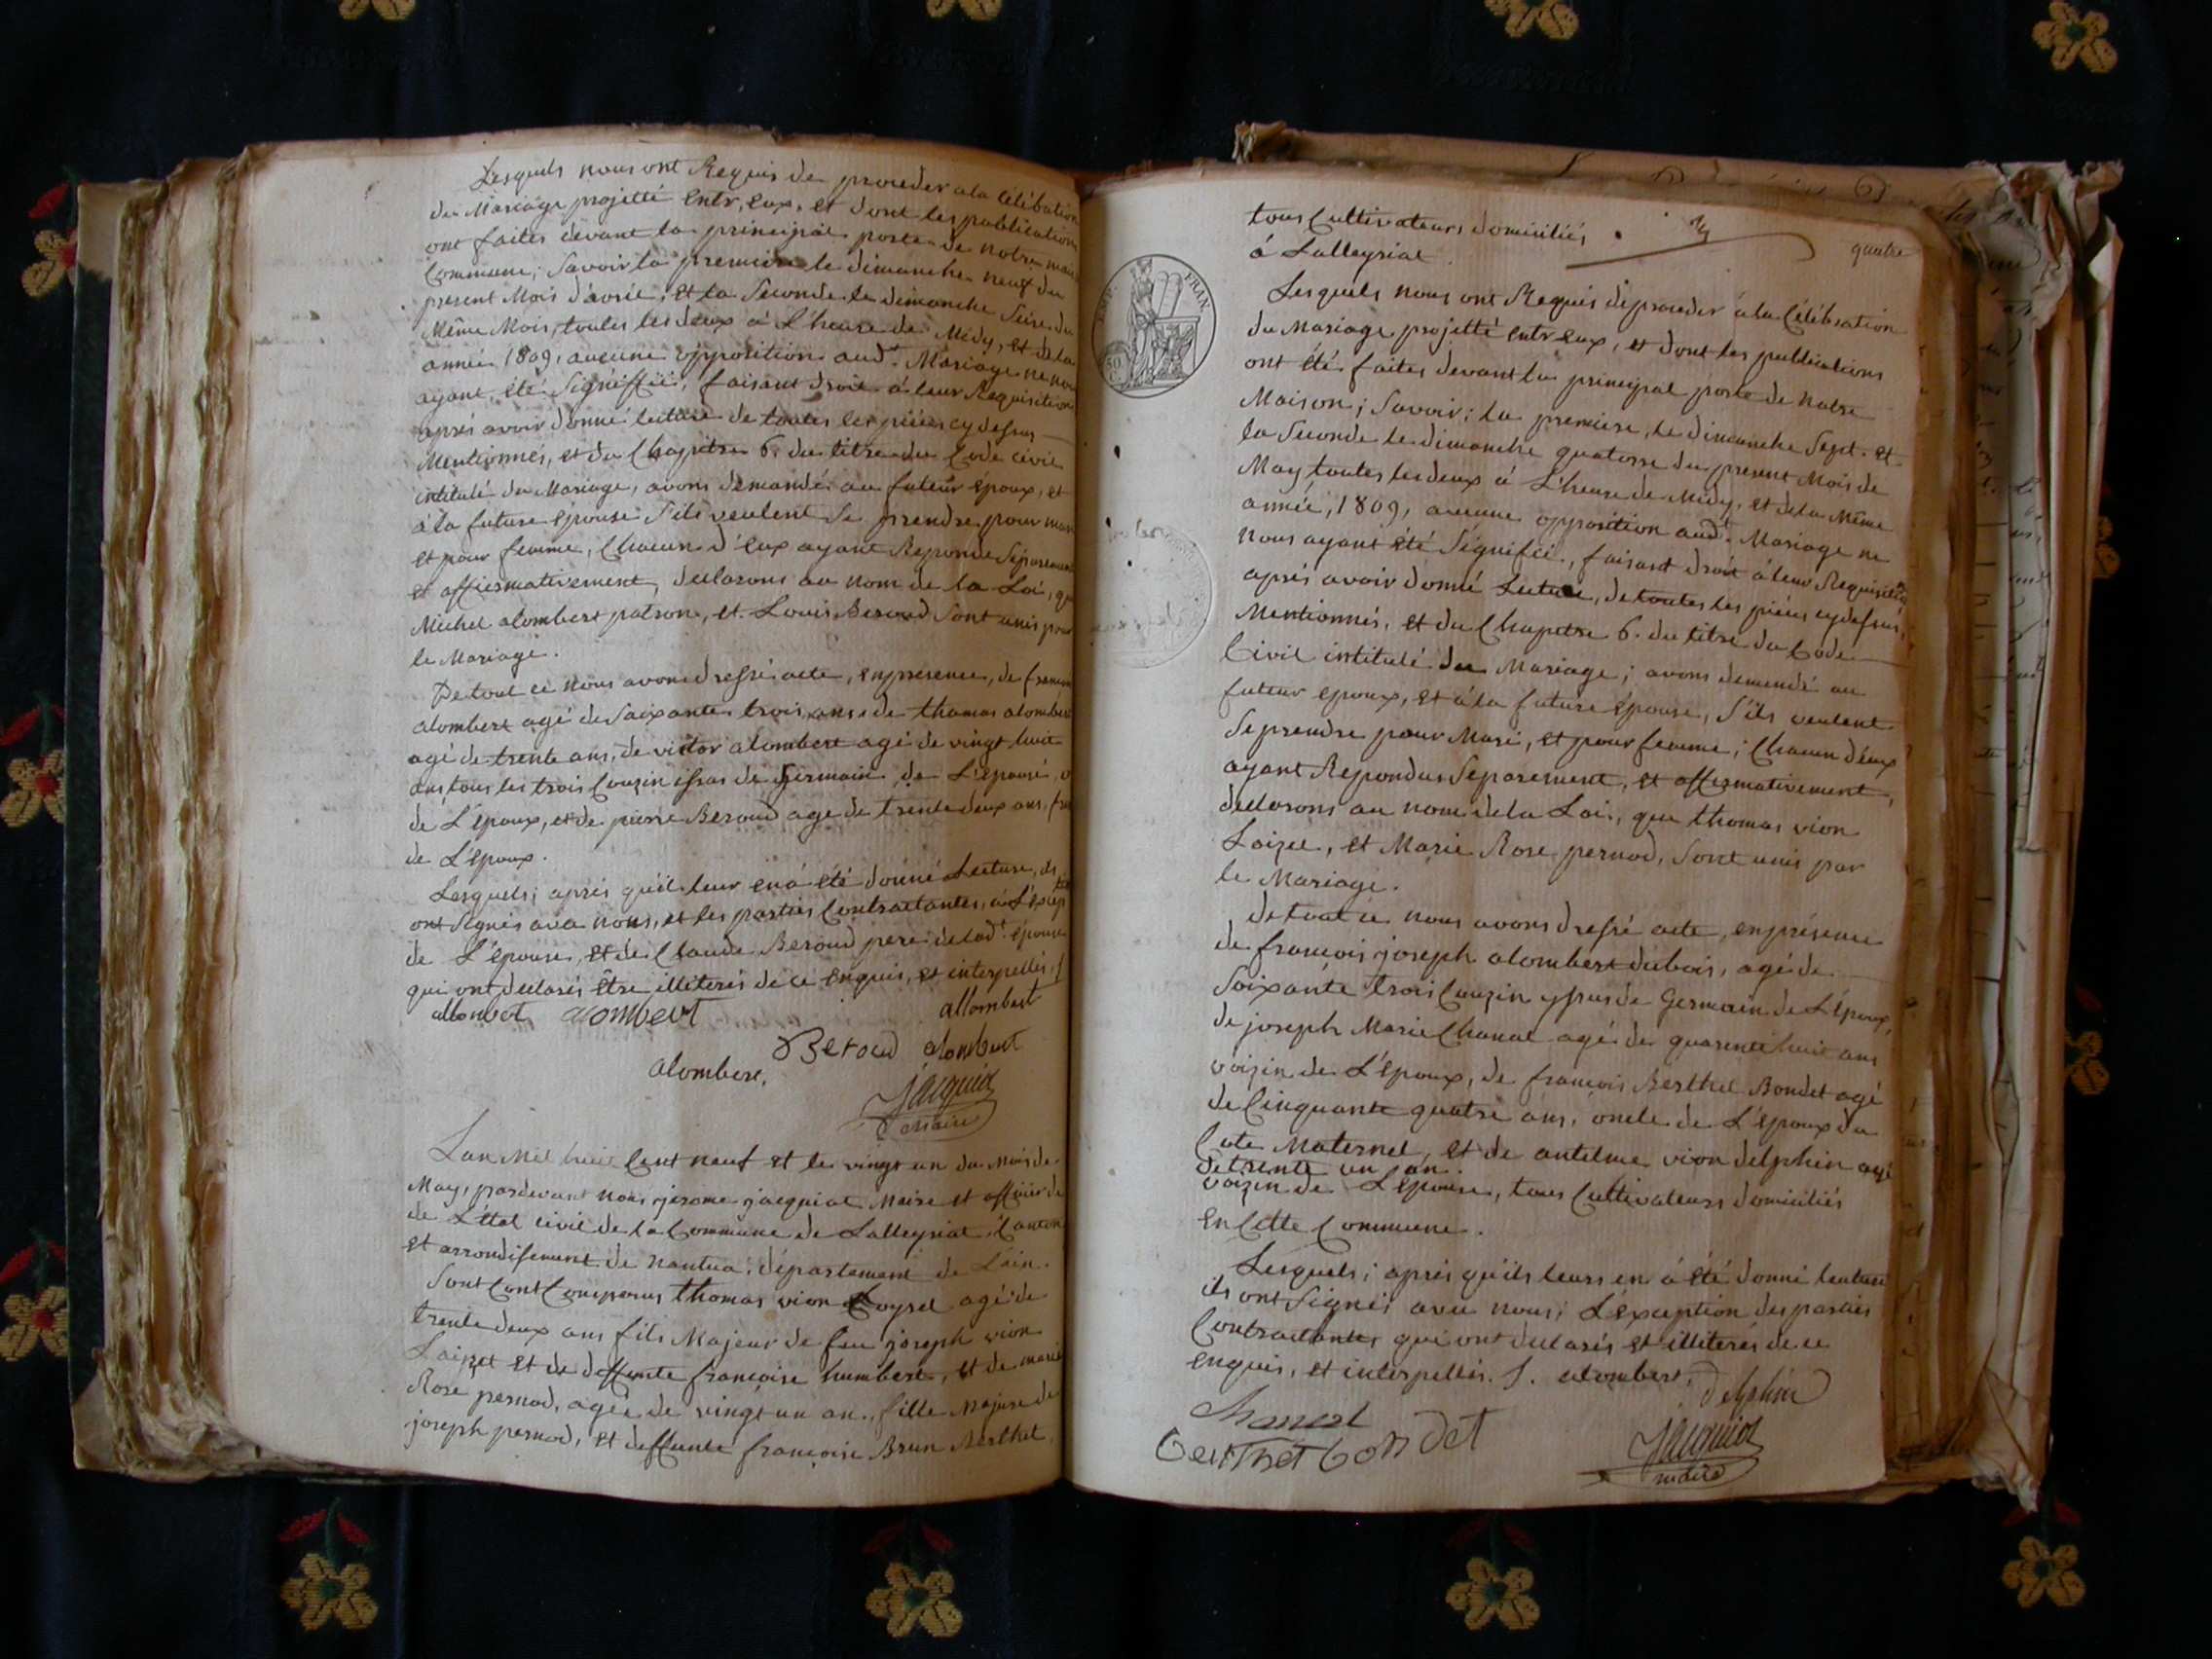 Lesquels nous ont Requis de proceder a la Célébation
du Mariage projetté entr, eux, et dont les publications
ont faites devant la principal porte de notre mais
Commune; Savoir la premiere le dimanche neuf du
present Mois d'avril, et la Seconde le dimanche Seize du
Même Mois, toutes les deux à L'heure de Midy, et de la
année 1809, aucune opposition aud.t Mariage ne nous
ayant été Signiffiée, faisant droit à leur Requisition
aprés avoir donné lecture de toutes les piéces cy dessus
Mentionnés, et du Chapitre 6. du titre du Code civil
intitulé du Mariage, avons demandé au futeur epoux, et
à la future epouse S'ils veulent Se prendre pour mari
et pour femme, Chacun d'eux ayant Repondu Séparement
et affirmativement, declarons au nom de la Loi, que
Michel alombert patron, et Louis Beroud Sont unis pour
le Mariage.
De tout ce nous avons dressé acte, en presence, de francois
alombert agé de Soixante trois ans, de thomas alombert
agé de trente ans, de victor alombert agé de vingt huit
ans tous les trois Couzin issus de Germain de L'epousé
de L'époux, et de pierre Beroud agé de trente deux ans, fre
de L'époux.
Lesquels; aprés qu'il leur en a été donné Lecture, ils
ont Signés avec nous, et les parties Contractantes, à L'éxcep
de L'épouse, et de Claude Beroud pere de lad.t épouse
qui ont declarés être illiterés de ce enquis, et interpellés, /
allombert alombert allombert
Beroud alombert
alombert,
Jacquiot
maire
Lan Mil huit Cent neuf et le vingt un du Mois de
May, pardevant nous jerome jacquiot Maire et officier de
de L'état civil de la Commune de Lalleyriat, Canton
et arrondissement de nantua, département de Lain.
Sont Comparus thomas vion Loysel agé de
trente deux ans fils Majeur de feu joseph vion
Loizet et de deffunte francoise humbert, et de marie
Rose pernod, agée de vingt un an, fille Majure de
joseph pernod, et deffunte françoise Brun Berthet
quatre
tous Cultivateurs domiciliés
à Lalleyriat.
EMP. FRAN.
Lesquels nous ont Requis de proceder à la Célébration
du Mariage projetté entr eux, et dont les publications
ont été faites devant la principal porte de Notre
Maison; Savoir; la premiere, le dimanche Sept. et
la Seconde le dimanche quatorze du present Mois de
May toutes les deux à L'heure de Midy, et de la Même
année, 1809, aucune opposition aud.t Mariage ne
nous ayant été Signifiée, faisant droit à leur Requisition
aprés avoir donné Lecture, de toutes les piéces cy dessus,
Mentionnés, et du Chapitre 6. du titre du Code
Civil intitulé du Mariage; avons demandé au
futeur epoux, et à la future épouse, S'ils veulent
Se prendre pour Mari, et pour femme; Chacun d'éux
ayant Repondus Séparement, et affirmativement,
declarons au nom de la Loi, que thomas vion
Loizet, et Marie Rose pernod, Sont unis par
le Mariage.
de tout ce nous avons dressé acte, en présence
de françois joseph alombert dubois, agé de
Soixante trois Couzin yssus de Germain de L'époux,
de joseph Marie Chanal agé de quarente huit ans
voizin de L'époux, de francois Berthet Bondet agé
de Cinquante quatre ans, oncle de L'époux du
Cote Maternel, et de antelme vion delphin agé
de trente un an.
voizin de L'épouse, tous Cultivateurs domiciliés
en Cette Commune.
Lesquels; aprés qu'ils leurs en à été donné lecture
ils ont Signés avec nous; L'éxception des parties
Contractantes qui ont declarés et illiterés de ce
enquis, et interpellés. /. alombert, delphin
Chanal
berthet bondet
Jacquiot
maire